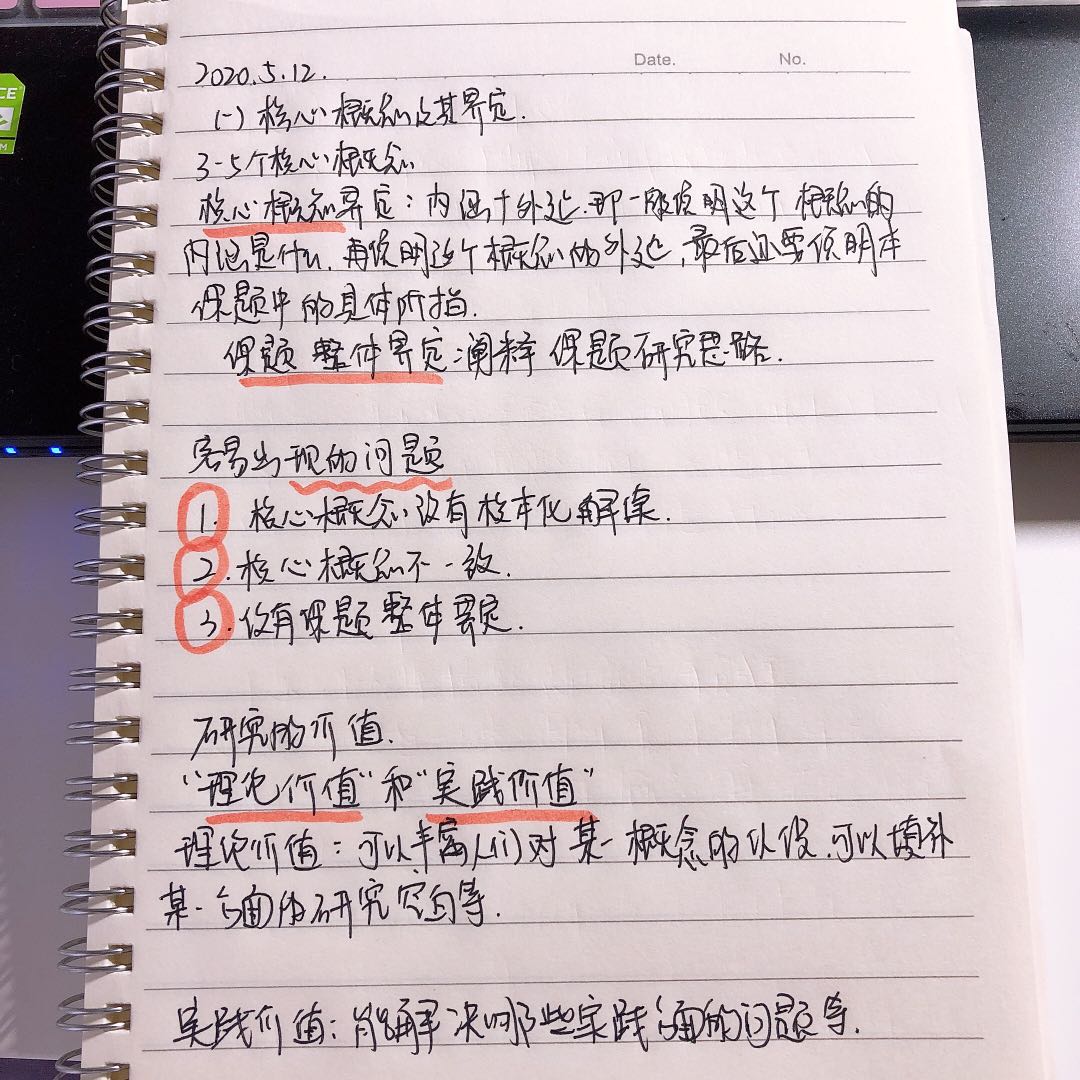 CE
Date. No.
2020.5.12.
(一) 核心概念及其界定.
3-5个核心概念
核心概念界定：内涵+外延.即一般说明这个概念的
内涵是什么,再说明这个概念的外延,最后还要说明本
课题中的具体所指.
课题整体界定:阐释课题研究思路.
容易出现的问题
1. 核心概念没有校本化解读.
2. 核心概念不一致.
3. 没有课题整体界定.
研究的价值.
“理论价值”和“实践价值”
理论价值：可以丰富人们对某一概念的认识,可以填补
某一方面的研究空白等.
实践价值：能解决哪些实践方面的问题等.